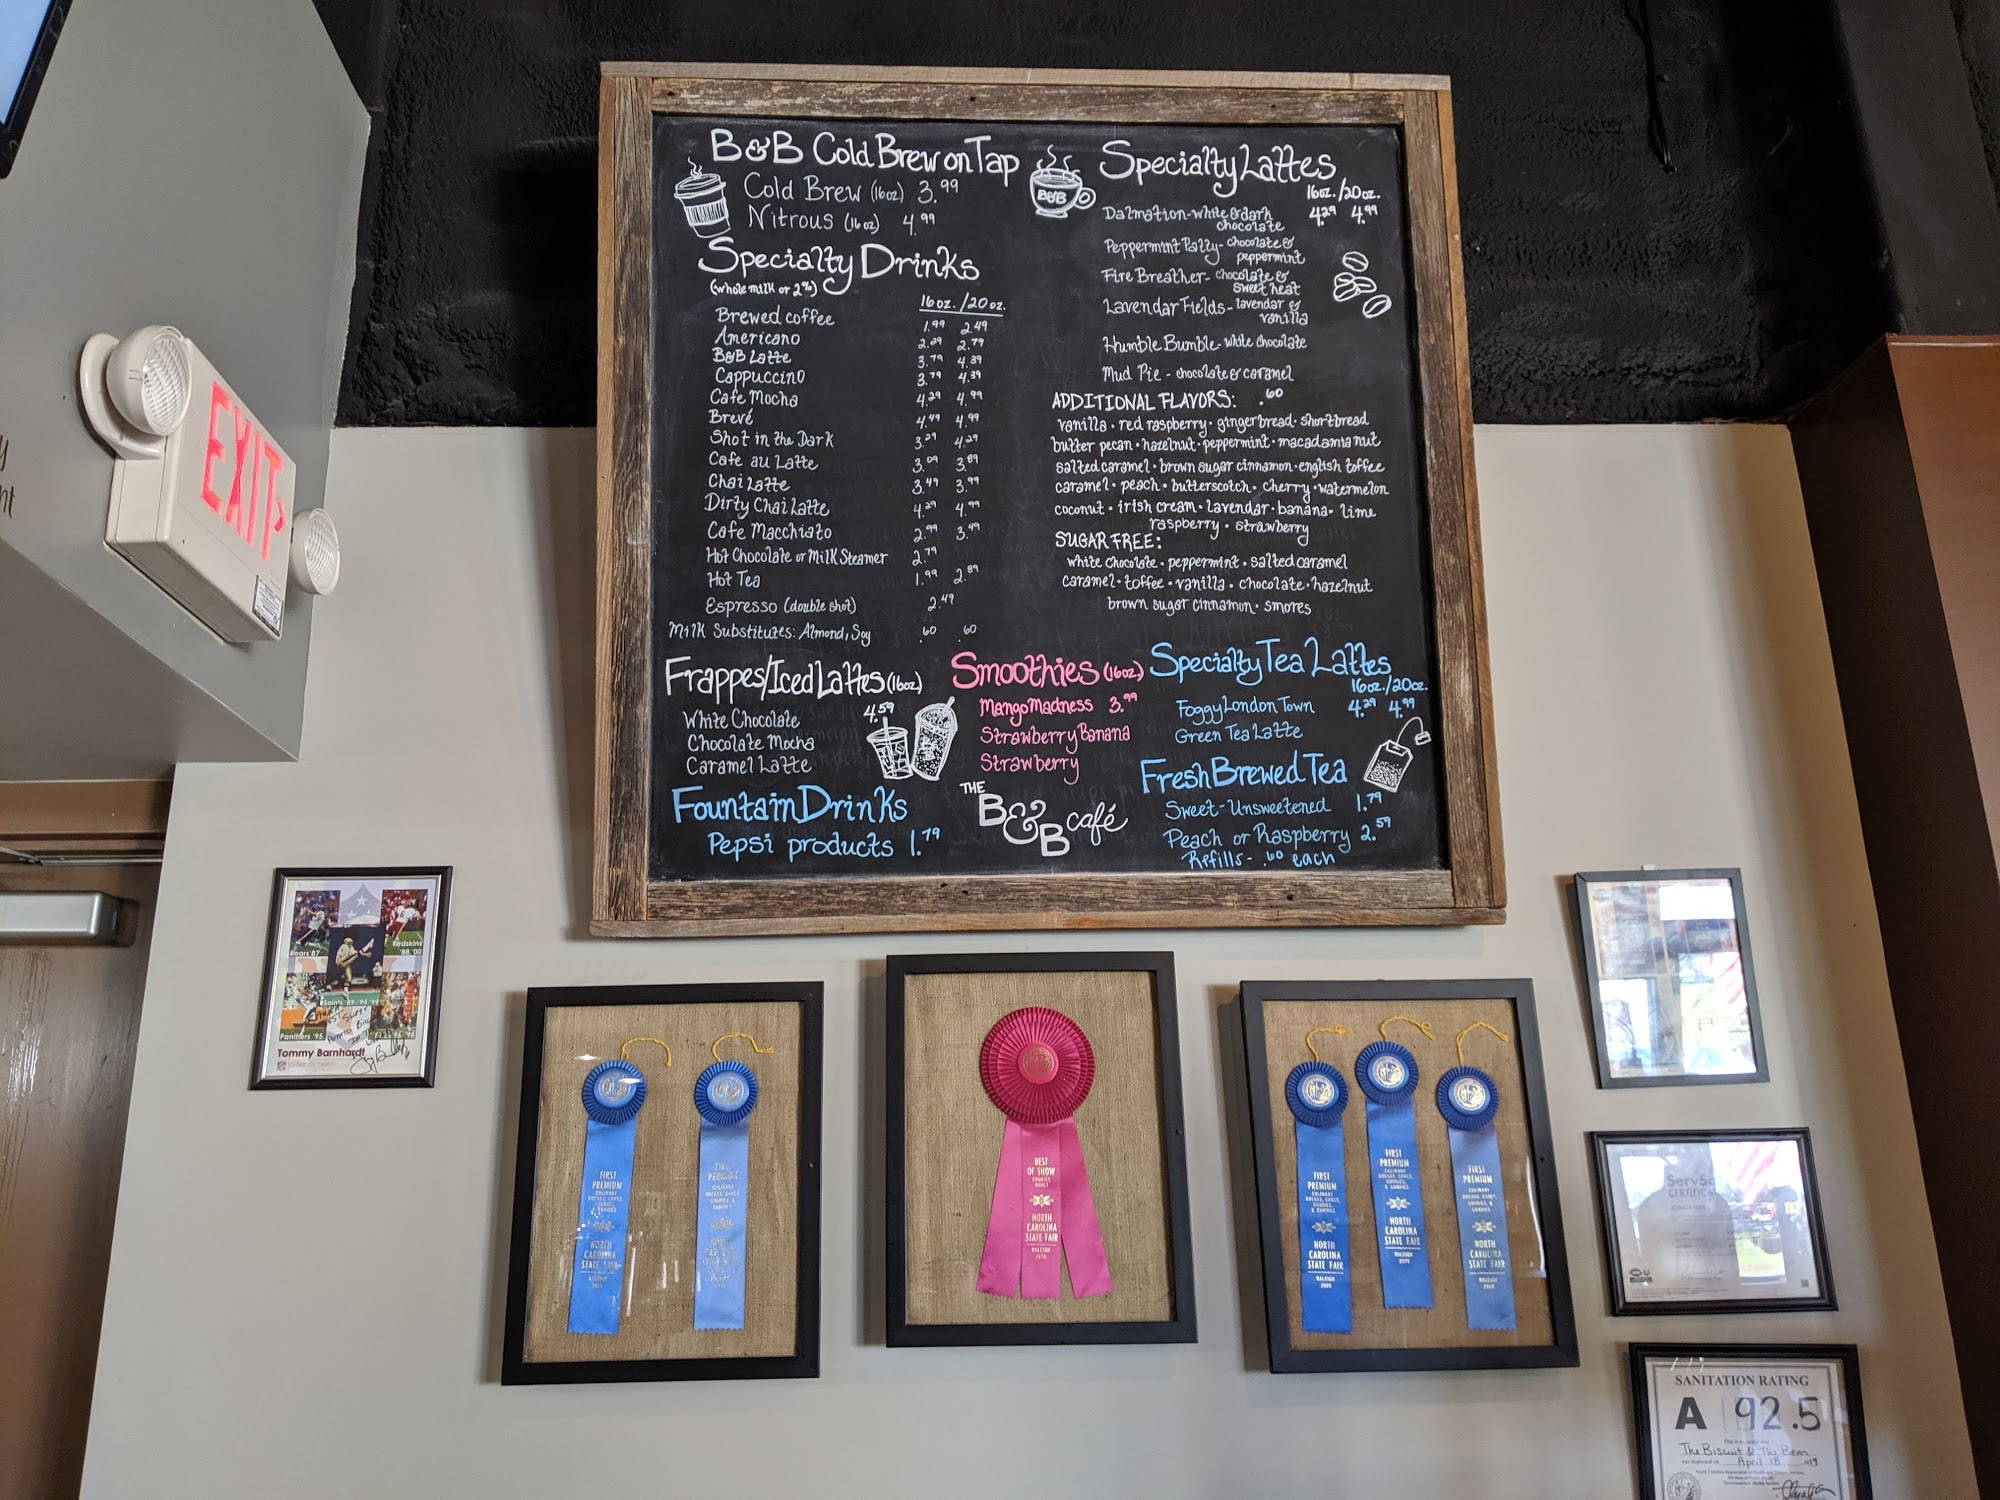 B&B Cold Brew on Tap
Cold Brew (16oz) 3.99
Nitrous (16oz) 4.99
Specialty Drinks
(whole milk or 2%)
16oz. / 20oz.
Brewed coffee 1.99 2.49
Americano 2.29 2.79
B&B Latte 3.79 4.39
Cappuccino 3.79 4.39
Cafe Mocha 4.29 4.99
Brevé 4.49 4.99
Shot in the Dark 3.29 4.29
Cafe au Latte 3.09 3.89
Chai Latte 3.49 3.99
Dirty Chai Latte 4.29 4.99
Cafe Macchiato 2.99 3.49
Hot Chocolate or Milk Steamer 2.79
Hot Tea 1.99 2.89
Espresso (double shot) 2.49
Milk Substitutes: Almond, Soy .60 .60
Frappes/Iced Lattes (16oz)
White Chocolate 4.59
Chocolate Mocha
Caramel Latte
Fountain Drinks
Pepsi products 1.79
B&B
Specialty Lattes
16oz. / 20oz.
Dalmation - white & dark 4.29 4.99
chocolate
Peppermint Patty - chocolate &
peppermint
Fire Breather - chocolate &
sweet heat
Lavendar Fields - lavendar &
vanilla
Humble Bumble - white chocolate
Mud Pie - chocolate & caramel
ADDITIONAL FLAVORS: .60
vanilla · red raspberry · gingerbread · shortbread
butter pecan · hazelnut · peppermint · macadamia nut
salted caramel · brown sugar cinnamon · english toffee
caramel · peach · butterscotch · cherry · watermelon
coconut · irish cream · lavendar · banana · lime
raspberry · strawberry
SUGAR FREE:
white chocolate · peppermint · salted caramel
caramel · toffee · vanilla · chocolate · hazelnut
brown sugar cinnamon · smores
Smoothies (16oz)
Mango Madness 3.99
Strawberry Banana
Strawberry
THE
B&B café
Specialty Tea Lattes
16oz. / 20oz.
Foggy London Town 4.29 4.99
Green Tea Latte
Fresh Brewed Tea
Sweet - Unsweetened 1.79
Peach or Raspberry 2.59
Refills - .60 each
EXIT
Bears '87
Redskins
'88.'00
Saints '89-'94.'99
Panthers '95
Tommy Barnhardt
FIRST
PREMIUM
CULINARY
BREADS, CAKES,
COOKIES,
& CANDIES
NORTH
CAROLINA
STATE FAIR
RALEIGH
FIRST
PREMIUM
CULINARY
BREADS, CAKES
COOKIES, &
CANDIES
BEST
OF SHOW
COOKIES
ADULT
NORTH
CAROLINA
STATE FAIR
RALEIGH
FIRST
PREMIUM
CULINARY
BREADS, CAKES,
COOKIES,
& CANDIES
NORTH
CAROLINA
STATE FAIR
RALEIGH
FIRST
PREMIUM
CULINARY
BREADS, CAKES,
COOKIES,
& CANDIES
NORTH
CAROLINA
STATE FAIR
RALEIGH
FIRST
PREMIUM
CULINARY
BREADS, CAKES,
COOKIES,
& CANDIES
NORTH
CAROLINA
STATE FAIR
RALEIGH
SANITATION RATING
A 92.5
The Biscuit & The Bean
was inspected on April 18